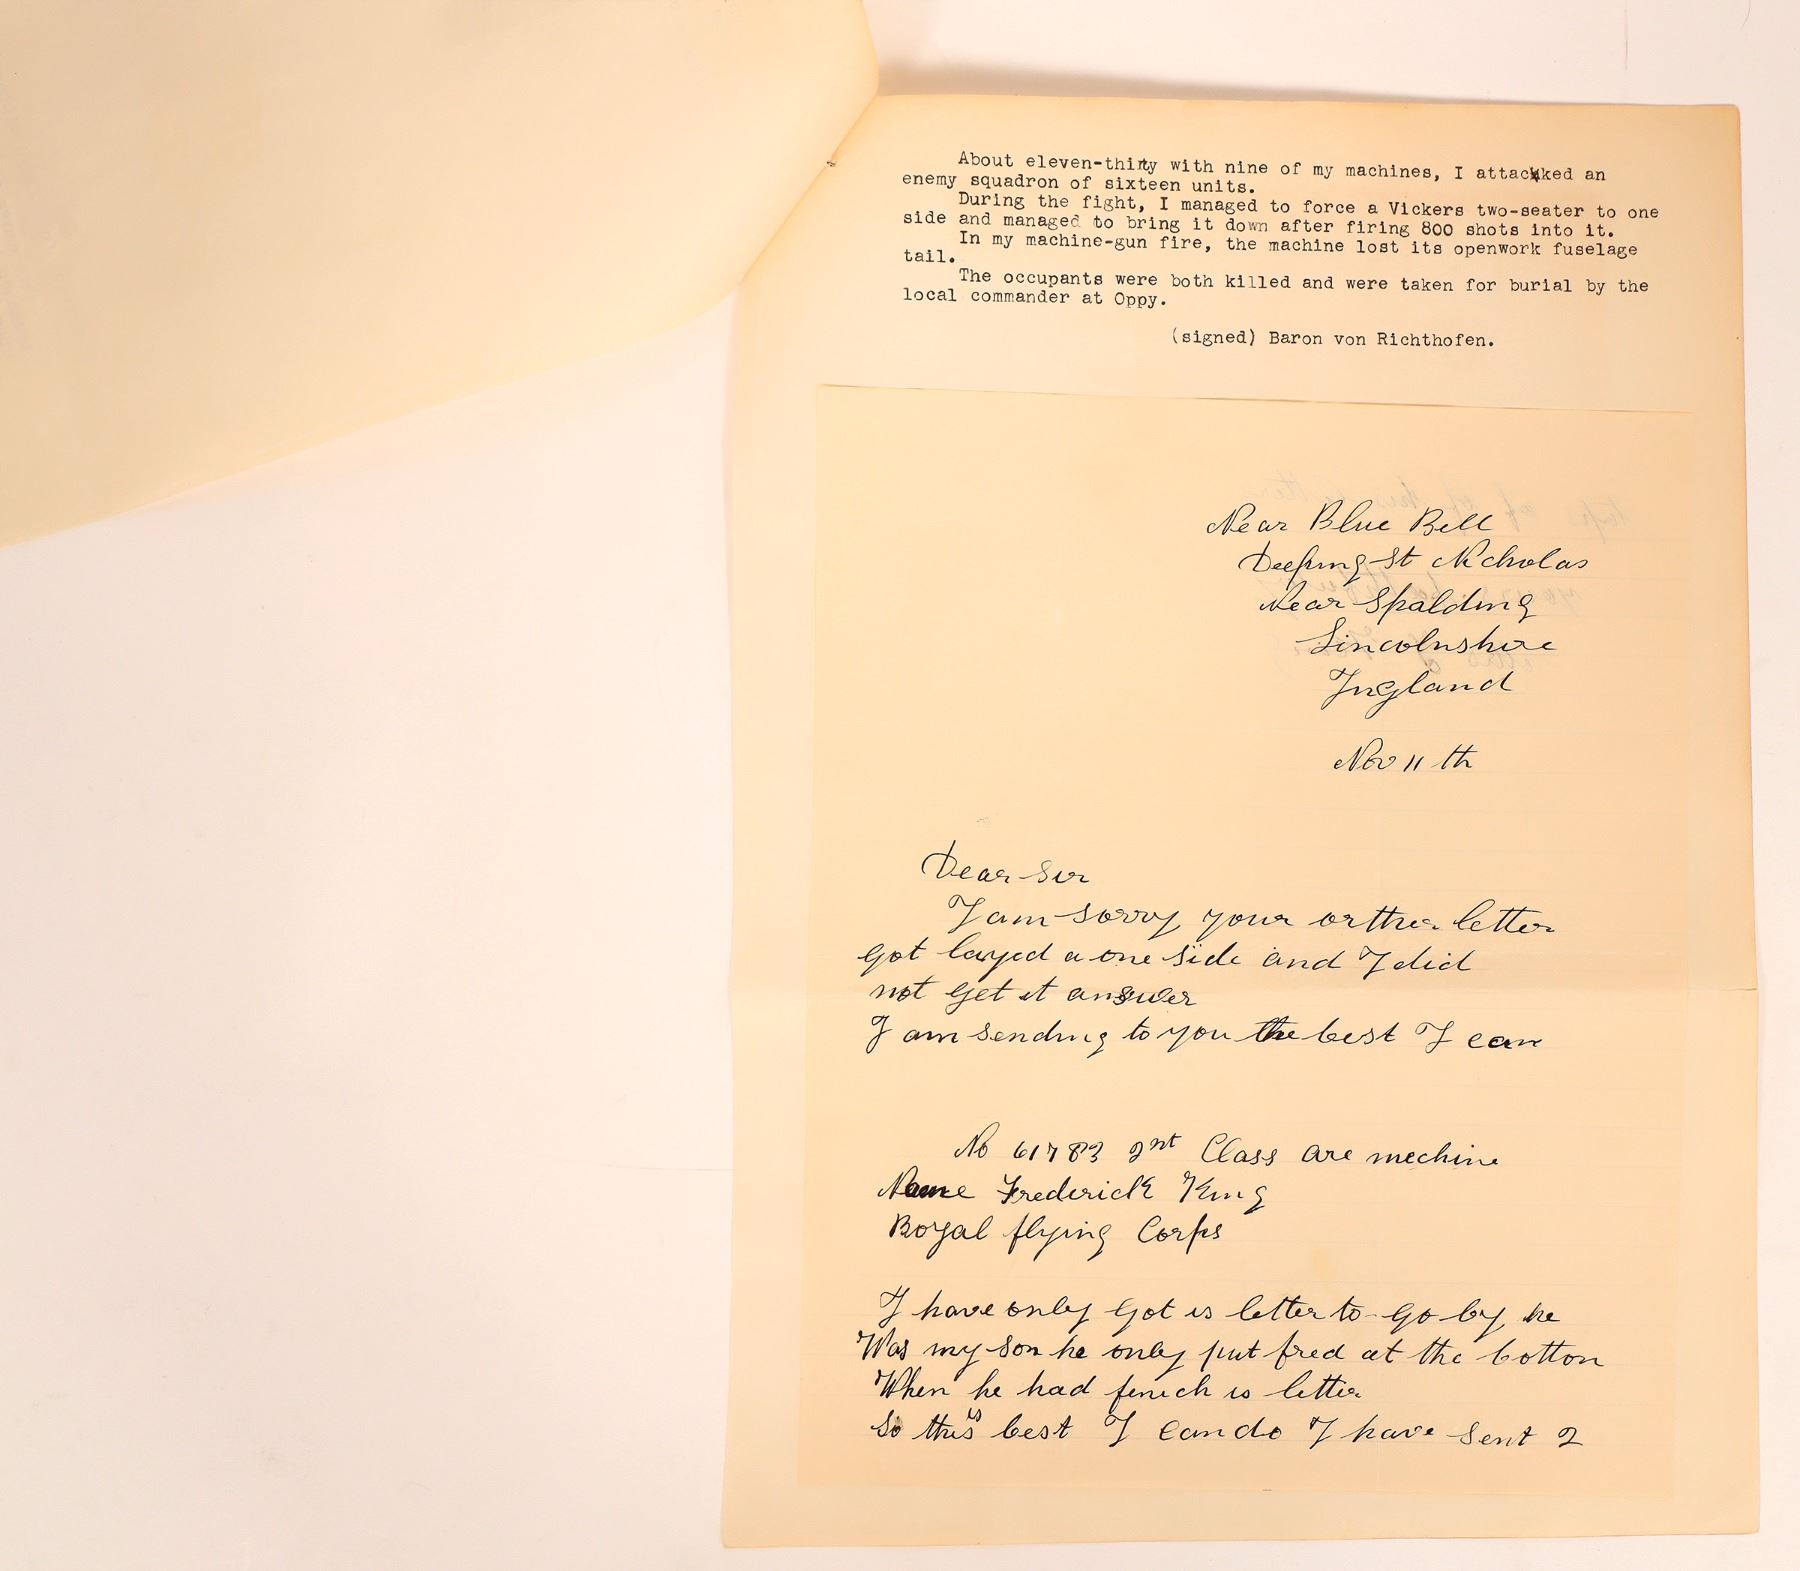 About eleven-thirty with nine of my machines, I attackked an
enemy squadron of sixteen units.
During the fight, I managed to force a Vickers two-seater to one
side and managed to bring it down after firing 800 shots into it.
In my machine-gun fire, the machine lost its openwork fuselage
tail.
The occupants were both killed and were taken for burial by the
local commander at Oppy.
(signed) Baron von Richthofen.
Near Blue Bell
Deeping St Nicholas
Near Spalding
Lincolnshire
Ingland
Nov 11 th
Dear Sir
I am sorry your orther letter
got layed a one side and I did
not get it answer
I am sending to you the best I can
No 61783 2nt Class are mechine
Name Frederick King
Royal flying Corps
I have only got is letter to go by he
Was my son he only put fred at the botton
When he had finich is letter
So this is best I can do I have sent 2